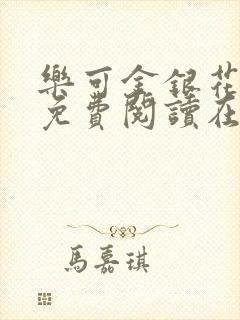 樂可金銀花
免費閱讀在
馬嘉琪